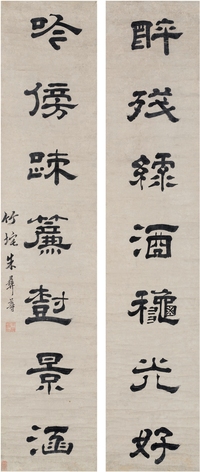 醉殘綠酒穐光好
吟傍疎簾樹景涵
竹垞朱彝尊